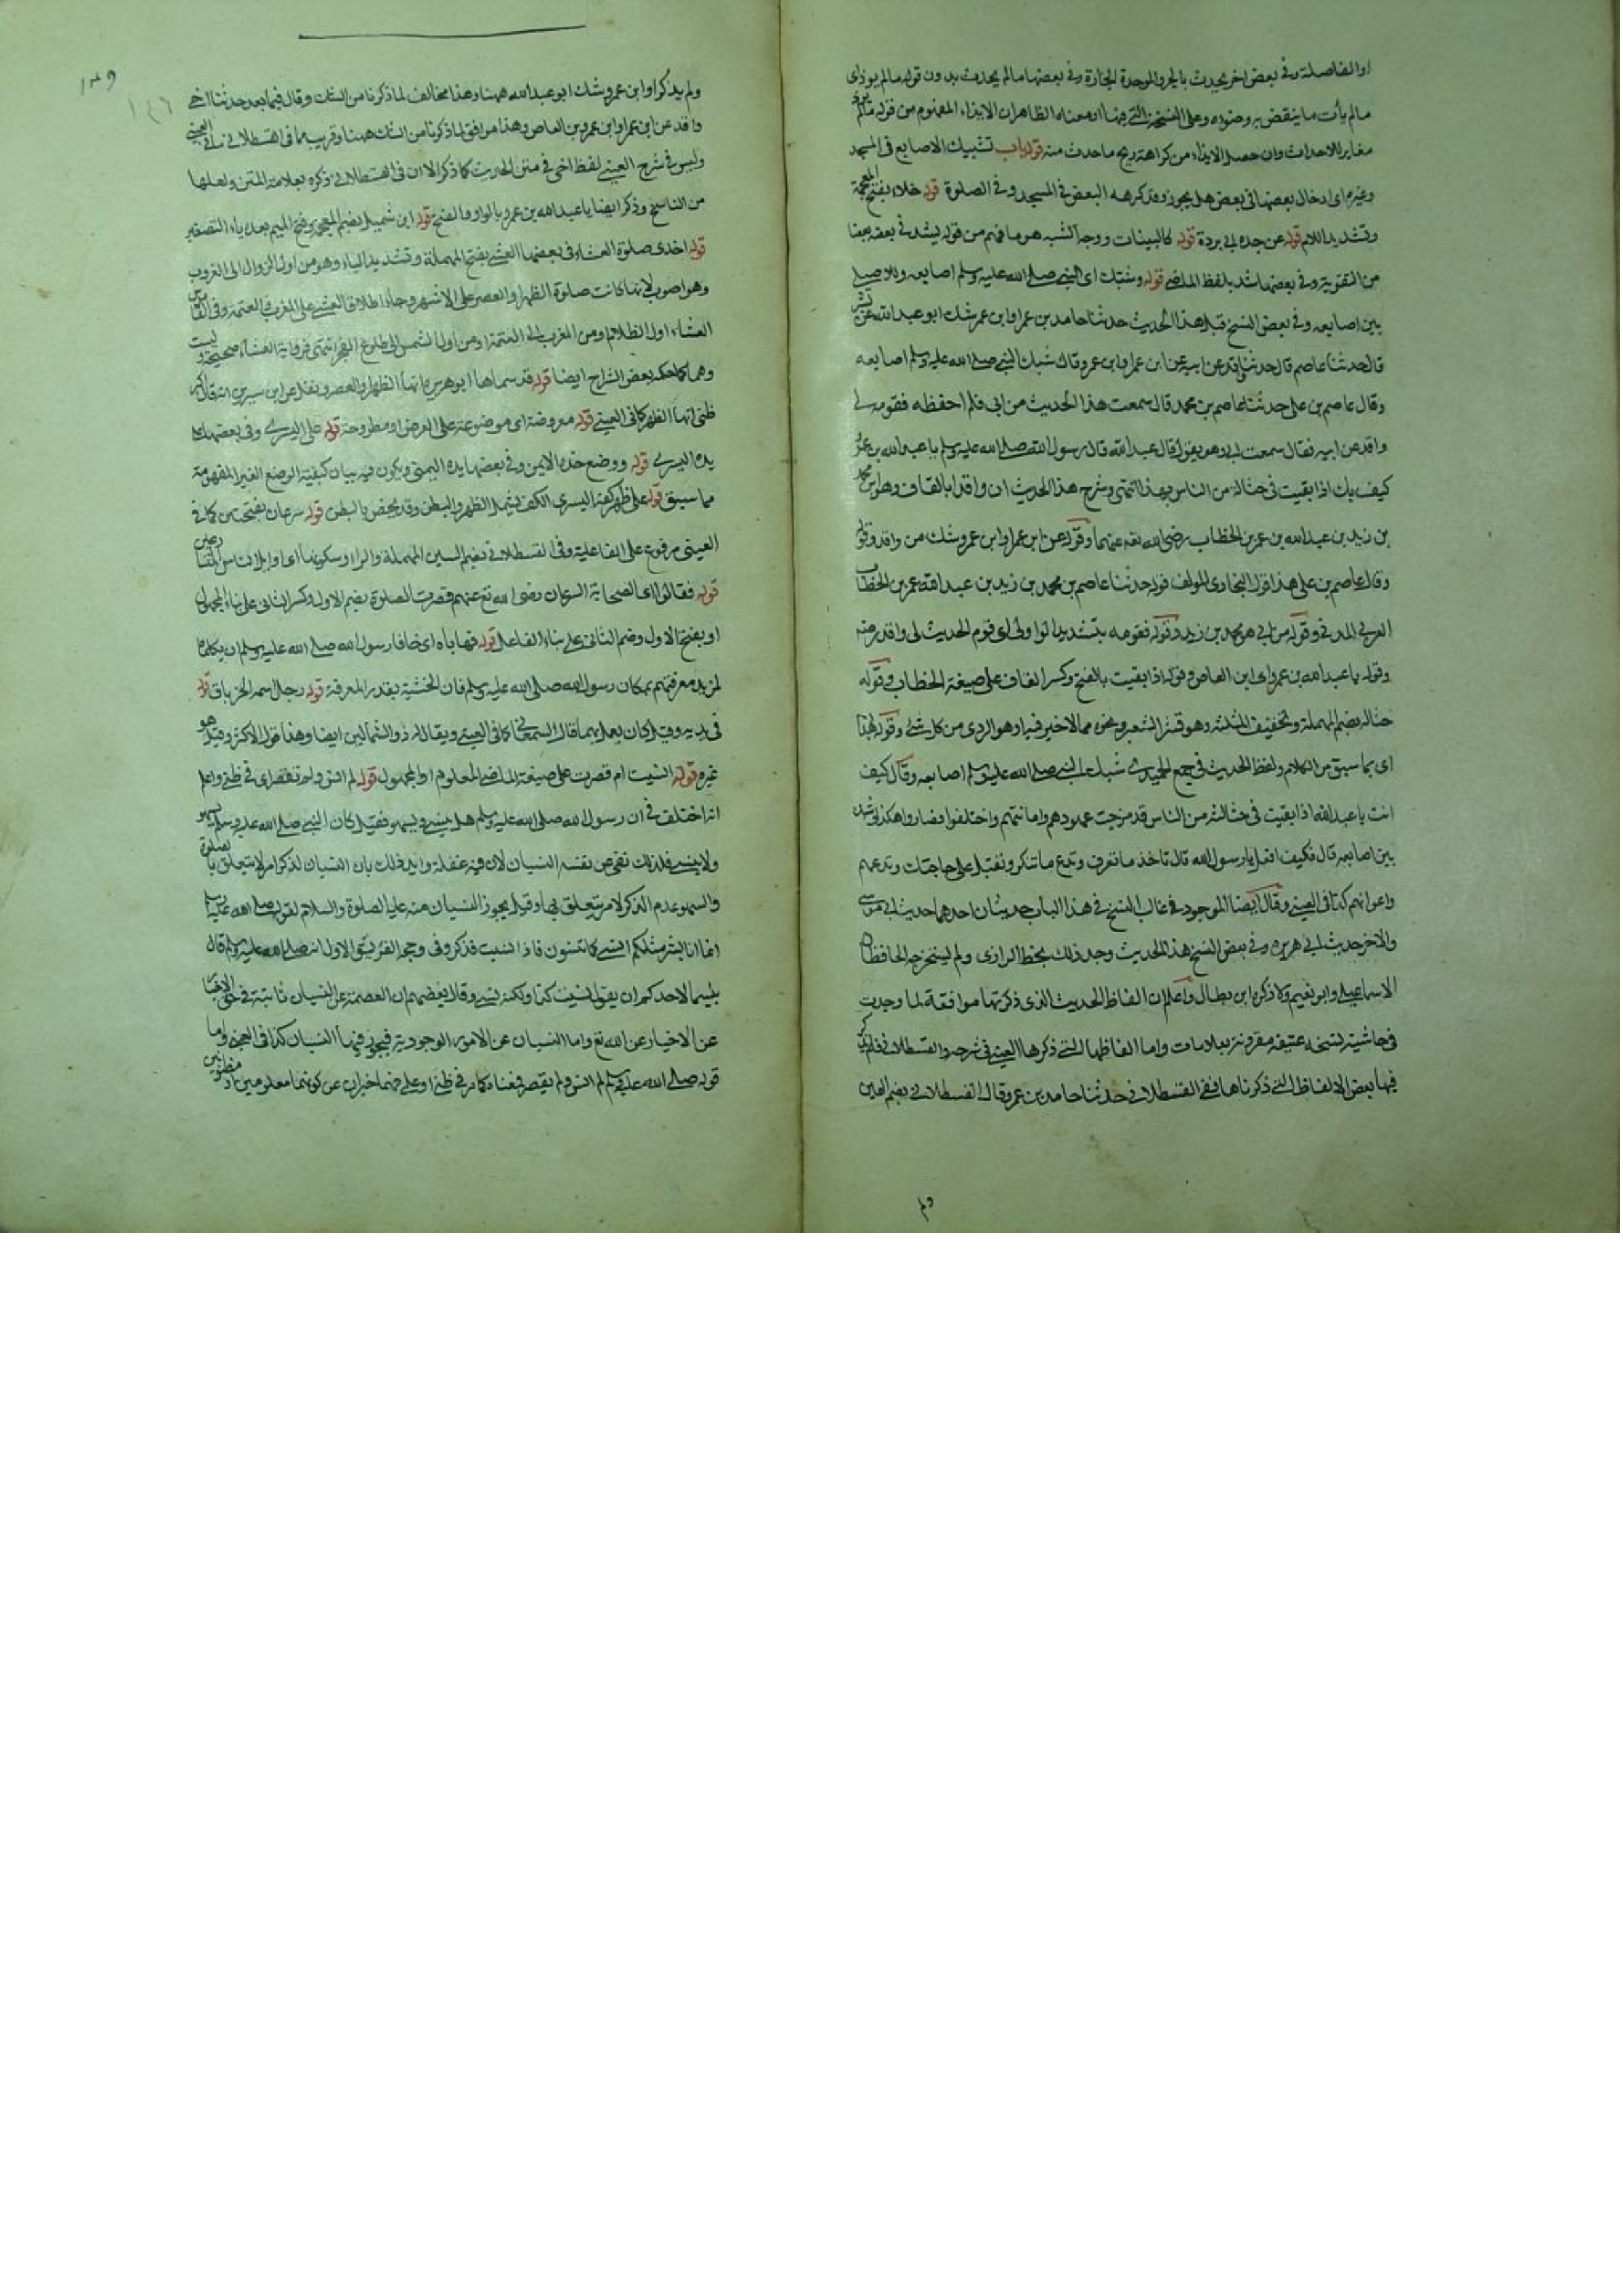 او الفاصلة وفي بعض اخر يحدث بالجر والموحدة الجارة وفي بعضها مالم يحدث بدون قوله مالم يوذى
مالم يأت ما ينقض به وضوءه وعلى النسخة التي هنا او معناه الظاهر ان الايذاء المفهوم من قوله مالم
مغاير للاحداث وان حصل الايذاء من كراهة ريح ما حدث منه قوله باب تشبيك الاصابع في المسجد
وغيره اى ادخال بعضها في بعض هل يجوز وقد كرهه البعض في المسجد وفي الصلوة قوله خلاد بفتح المعجمة
وتشديد اللام قوله عن جده ابى بردة قوله كالبينات ووجه الشبه هو ما فهم من قوله يشد في بعضه بعضا
من التقوية وفي بعضها شد بلفظ الماضي قوله وشبك اى النبي صلى الله عليه وسلم اصابعه
بين اصابعه وفي بعض النسخ قبل هذا الحديث حدثنا حامد بن عمر او ابن عمر شك ابو عبد الله عن بشر
قال حدثنا عاصم قال حدثنا واقد عن ابيه عن ابن عمر او ابن عمرو قال شبك النبي صلى الله عليه وسلم اصابعه
وقال عاصم بن على حدثنا عاصم بن محمد قال سمعت هذا الحديث من ابى فلم احفظه فقومه لى
واقد عن ابيه فقال سمعت ابى وهو يقول قال عبد الله قال رسول الله صلى الله عليه وسلم يا عبد الله بن عمرو
كيف بك اذا بقيت في حثالة من الناس بهذا انتهى وشرح هذا الحديث ان واقدا بالقاف وهو ابن محمد
بن زيد بن عبد الله بن عمر بن الخطاب رضى الله تعه عنهما وقوله عن ابن عمر او ابن عمرو شك من واقد وقوله
وقال عاصم بن على هذا قول البخارى المولف قوله حدثنا عاصم بن محمد بن زيد بن عبد الله عمر بن الخطاب
العمرى المدني وقوله من ابى هو محمد بن زيد وقوله فقومه بتشديد الواو اى قوم الحديث لى واقد
وقوله يا عبد الله بن عمرو اى ابن العاص وقوله اذا بقيت بالفتح وكسر القاف على صيغة الخطاب وقوله
حثالة بضم المهملة وتخفيف المثلثة وهو قشر الشعير ونحوه مما لا خير فيه او هو الردى من كل شئ وقوله بهذا
اى بما سبق من الكلام ولفظ الحديث في جمع الحميدى شبك النبي صلى الله عليه وسلم اصابعه وقال كيف
انت يا عبد الله اذا بقيت في حثالة من الناس قد مرجت عهودهم وامانتهم واختلفوا فصاروا هكذا وشبك
بين اصابعه قال فكيف افعل يا رسول الله قال تاخذ ما تعرف وتدع ما تنكر وتقبل على خاصتك وتدعهم
وعوامهم كذا في العيني وقال ايضا الموجود في غالب النسخ في هذا الباب حديثان احدهما حديث ابى موسى
والاخر حديث ابى هريرة وفي بعض النسخ هذا الحديث وجد ذلك بخط البرازى ولم يستخرجه الحافظان
الاسماعيلى وابو نعيم ولا ذكره ابن بطال واعلم ان الفاظ الحديث الذى ذكرتها موافقة لما وجدت
في حاشية نسخة عتيقة مقرونة بعلامات واما الفاظها التي ذكرها العيني في شرحه والقسطلاني فلم يذكر
فيها بعض الالفاظ التي ذكرناها ففى القسطلاني حدثنا حامد بن عمر وقال القسطلاني بضم العين
ولم
١٤٩
١٤٦
ولم يذكر او ابن عمرو شك ابو عبد الله ههنا وهذا مخالف لما ذكرنا من الشك وقال فيما بعد حدثنا اخى
واقد عن ابن عمر او ابن عمرو بن العاص وهذا موافق لما ذكرنا من الشك ههنا وقريب مما في القسطلاني العيني
وليس في شرح العيني لفظ اخى في متن الحديث كما ذكر الا ان في القسطلاني ذكره بعلامة المتن ولعلها
من الناسخ وذكر ايضا يا عبد الله بن عمرو بالواو والفتح قوله ابن شميل بضم المعجمة وفتح الميم بعد ياء التصغير
قوله احدى صلوة العشاء في بعضها العشى بفتح المهملة وتشديد الياء وهو من اول الزوال الى الغروب
وهو اصوب لانها كانت صلوة الظهر او العصر على الاشهر وجاء اطلاق العشى على المغرب العتمة وفي القاموس
العشاء اول الظلام ومن المغرب الى العتمة او من اول الشمس الى طلوع الفجر انتهى فرواية العشاء صحيحة
وهما كما حكه بعض الشراح ايضا قوله قد سماها ابو هريرة انها الظهر والعصر ونقل عن ابن سيرين انه قال اكبر
ظنى انها الظهر كما في العيني قوله معروضة اى موضوعة على العرض او مطروحة قوله على اليسرى وفي بعضها على
يده اليسرى قوله ووضع خده الايمن وفي بعضها يده اليمنى ويكون فيه بيان كيفية الوضع الغير المفهومة
مما سبق قوله على ظهر كفه اليسرى الكف يشمل الظهر والبطن وقد يخص بالبطن قوله سرعان بفتحتين كما في
العيني مرفوع على الفاعلية وفي القسطلاني بضم السين المهملة والراء وسكونها اى اوايل الناس
قوله فقالوا اى الصحابة السرعان رضى الله تع عنهم قصرت الصلوة بضم الاول وكسر الثاني على بناء المجهول
او بفتح الاول وضم الثاني على بناء الفاعل قوله فهاباه اى خافا رسول الله صلى الله عليه وسلم ان يكلماه
لمزيد معرفتهم بمكان رسول الله صلى الله عليه وسلم فان الخشية بقدر المعرفة قوله رجل اسمه الخرباق قوله
في يديه وقيل كان يعمل بهما قال السمعاني كما في العيني ويقال له ذو الشمالين ايضا وهذا قول الاكثر وقيل هو
غيره قوله انسيت ام قصرت على صيغة الماضى المعلوم او المجهول قوله لم انس ولم تقصر اى في ظنى واعلم
انه اختلف في ان رسول الله صلى الله عليه وسلم هل ينسى ويسهو فقيل كان النبي صلى الله عليه وسلم يسهو
ولا ينسى فلذلك نفى عن نفسه النسيان لان فيه غفلة وايد ذلك بان النسيان لذكر امر لا يتعلق بالصلوة
والسهو عدم الذكر لامر يتعلق بها وقيل يجوز النسيان منه عليه الصلوة والسلام لقوله صلى الله عليه وسلم
انما انا بشر مثلكم انسى كما تنسون فاذا نسيت فذكروني وجمع الفريق الاول انه صلى الله عليه وسلم قال
بئسما لاحدكم ان يقول نسيت كذا ولكنه نسى وقال بعضهم ان العصمة عن النسيان ثابتة في
عن الاخبار عن الله تع واما النسيان عن الامور الوجودية فيجوز فيها النسيان كذا في العيني واما
قوله صلى الله عليه وسلم لم انس ولم يقصر فمعناه كما مر في ظنى او على خبران عن كونهما معلومين او مظنونين